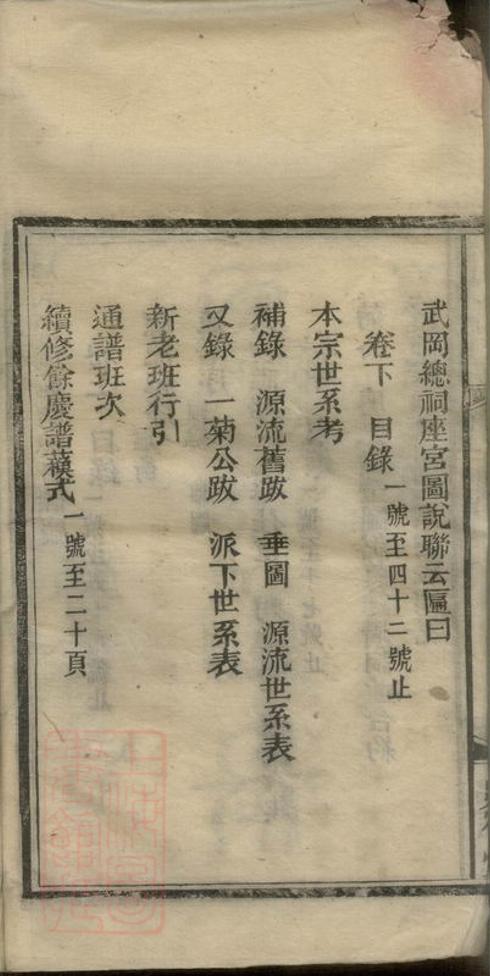 武岡總祠座宮圖說聯云匾曰
卷下 目錄 一號至四十二號止
本宗世系考
補錄 源流舊跋 垂圖 源流世系表
又錄 一菊公跋 派下世系表
新老班行引
通譜班次
續修餘慶譜蕀式 一號至二十頁